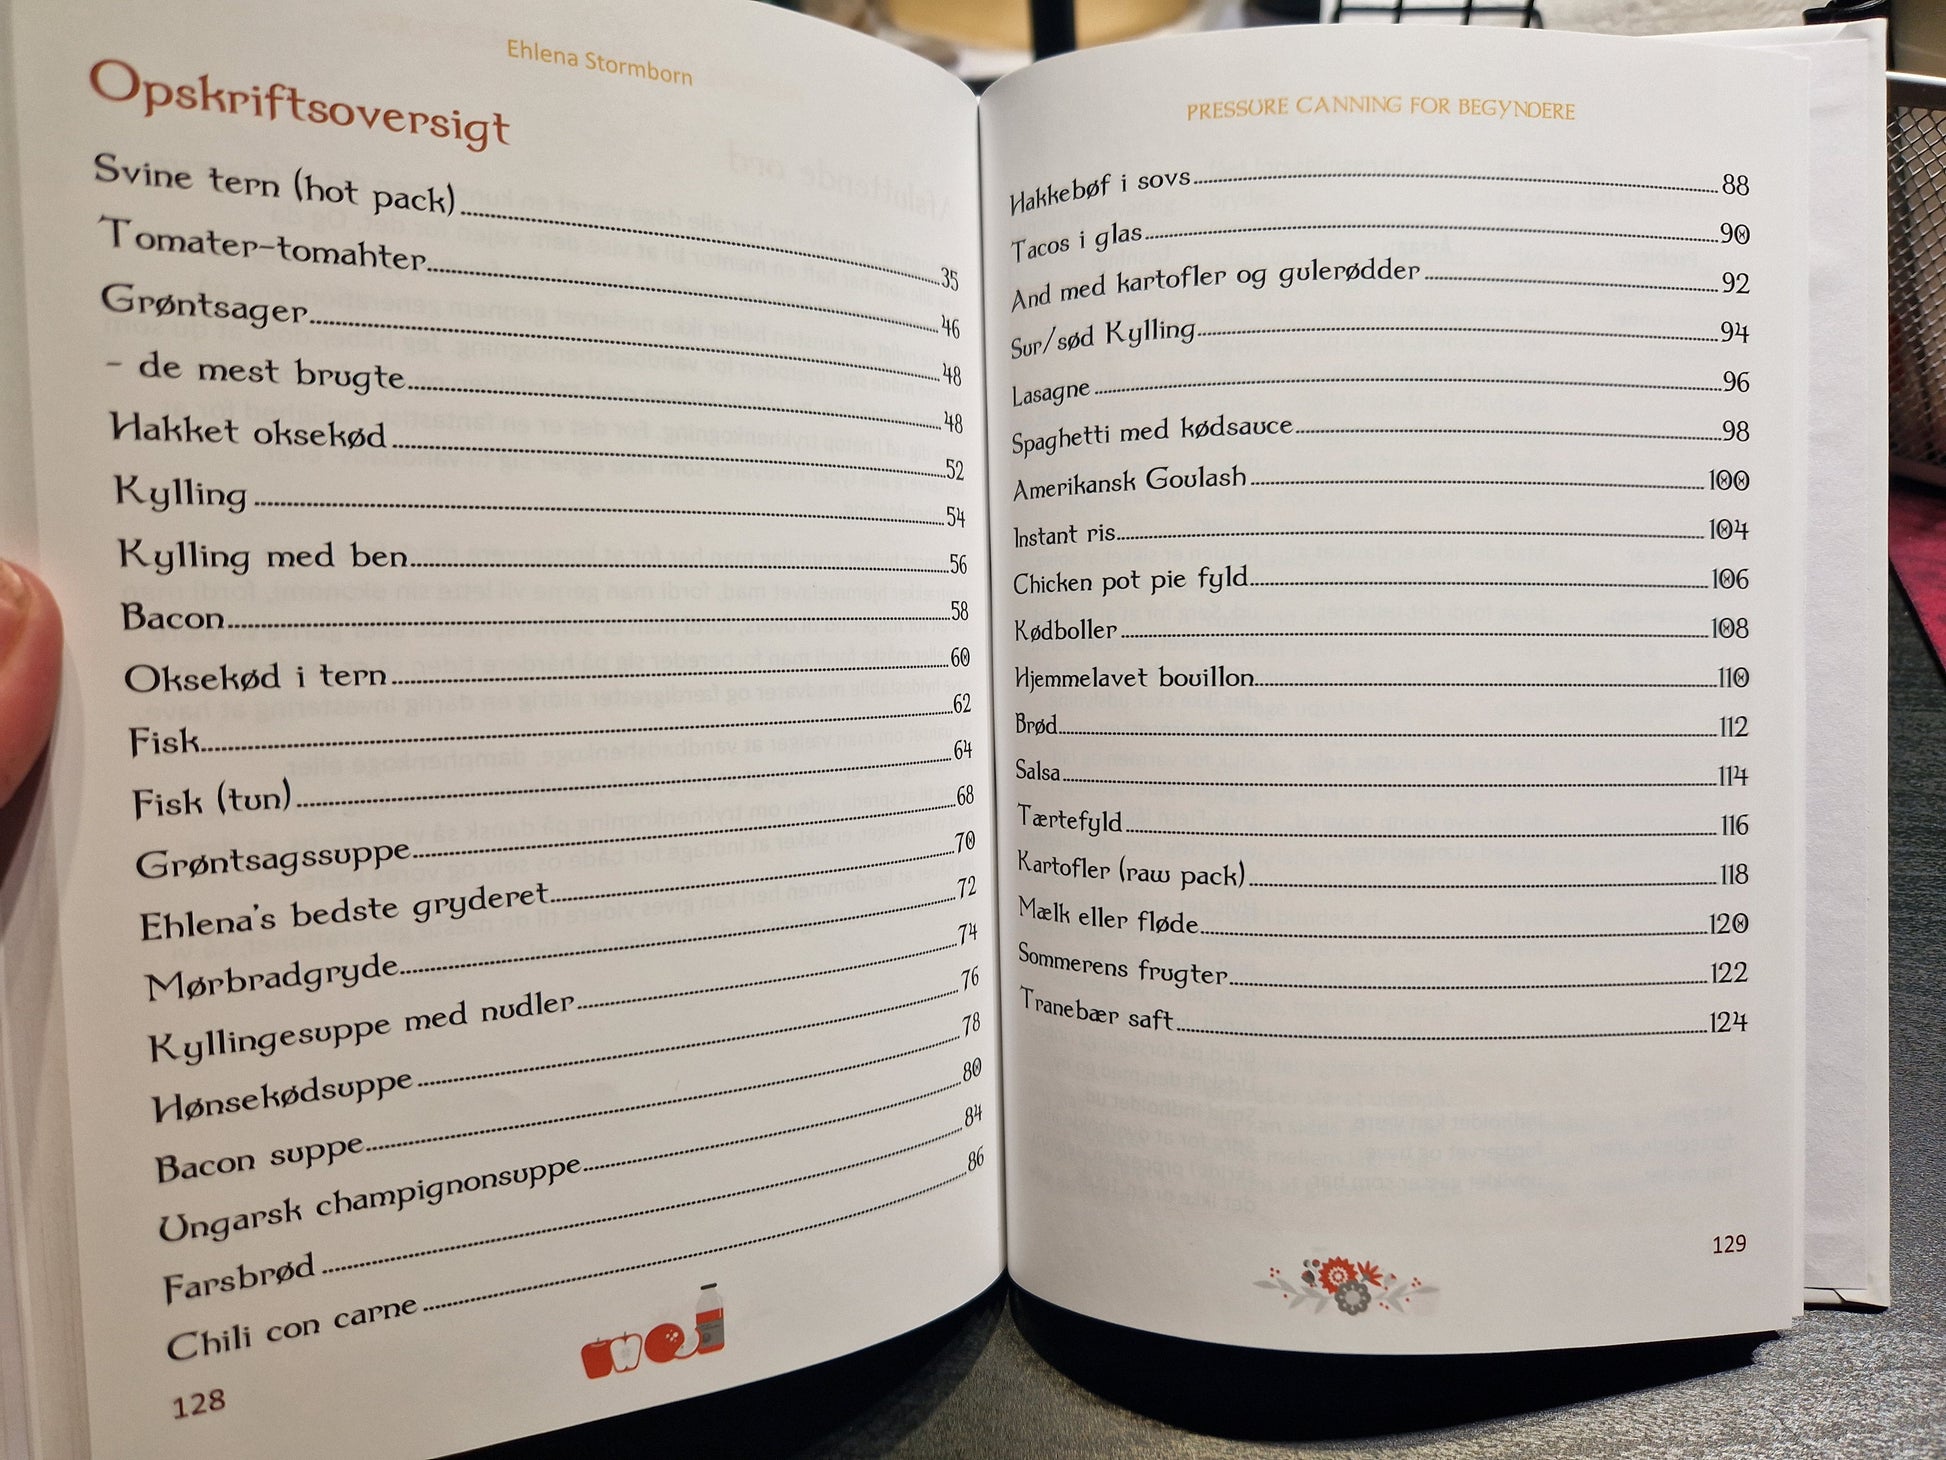 Ehlena Stormborn
Opskriftsoversigt
Svine tern (hot pack)........35
Tomater-tomahter........46
Grøntsager........48
- de mest brugte........48
Hakket oksekød........52
Kylling........54
Kylling med ben........56
Bacon........58
Oksekød i tern........60
Fisk........62
Fisk (tun)........64
Grøntsagssuppe........68
Ehlena's bedste gryderet........70
Mørbradgryde........72
Kyllingesuppe med nudler........74
Hønsekødsuppe........76
Bacon suppe........78
Ungarsk champignonsuppe........80
Farsbrød........84
Chili con carne........86
128
PRESSURE CANNING FOR BEGYNDERE
Hakkebøf i sovs........88
Tacos i glas........90
And med kartofler og gulerødder........92
Sur/sød Kylling........94
Lasagne........96
Spaghetti med kødsauce........98
Amerikansk Goulash........100
Instant ris........104
Chicken pot pie fyld........106
Kødboller........108
Hjemmelavet bouillon........110
Brød........112
Salsa........114
Tærtefyld........116
Kartofler (raw pack)........118
Mælk eller fløde........120
Sommerens frugter........122
Tranebær saft........124
129